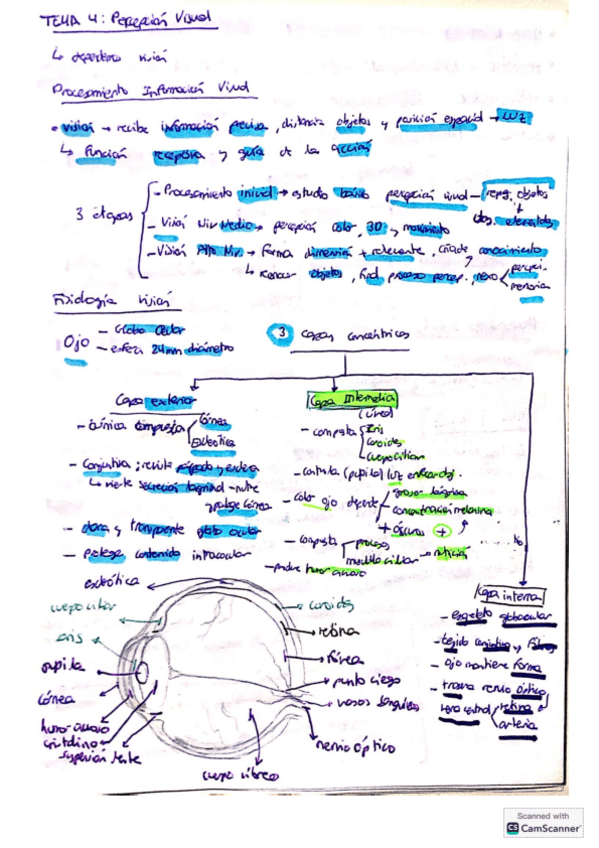 TEMA 4: Percepción Visual
↳ apertura visión
Procesamiento Información Visual
• visión → recibe información precisa, distancia objetos y posición espacial → LUZ
↳ Función receptora y guía de la acción
3 etapas
- Procesamiento inicial → estudio básico percepción visual - repr. objetos
↓
obs. elementos
- Visión Niv Medio → percepción color, 3D y movimiento
- Visión Alto Niv. → Forma dimensión + relevante, añade conocimiento
↳ conocer objetos, final proceso percep., nexo percepción
memoria
Fisiología visión
Ojo
- Globo Ocular
- esfera 24mm diámetro
3 capas concéntricas
Capa exterior
- túnica compuesta
Córnea
Esclerótica
- Conjuntiva; reviste párpado y esclera
↳ vierte secreción lagrimal - nutre
y protege córnea
- clara y transparente globo ocular
- protege contenido intraocular
Capa Intermedia
(úvea)
- compuesta
Iris
coroides
cuerpo ciliar
- contrae (pupila) luz
- color ojo depende
concentración melanina
+ oscuro +
- compuesta
procesos
músculo ciliar → nutrición
- produce humor acuoso
Capa interna
- esqueleto globo ocular
- tejido conjuntivo y fibras
- ojo mantiene forma
- nervio óptico
vena central retina
arteria
esclerótica
cuerpo ciliar
iris
pupila
córnea
humor acuoso
cristalino
coroides
retina
fóvea
punto ciego
vasos sanguíneos
nervio óptico
cuerpo vítreo
Scanned with
CS CamScanner